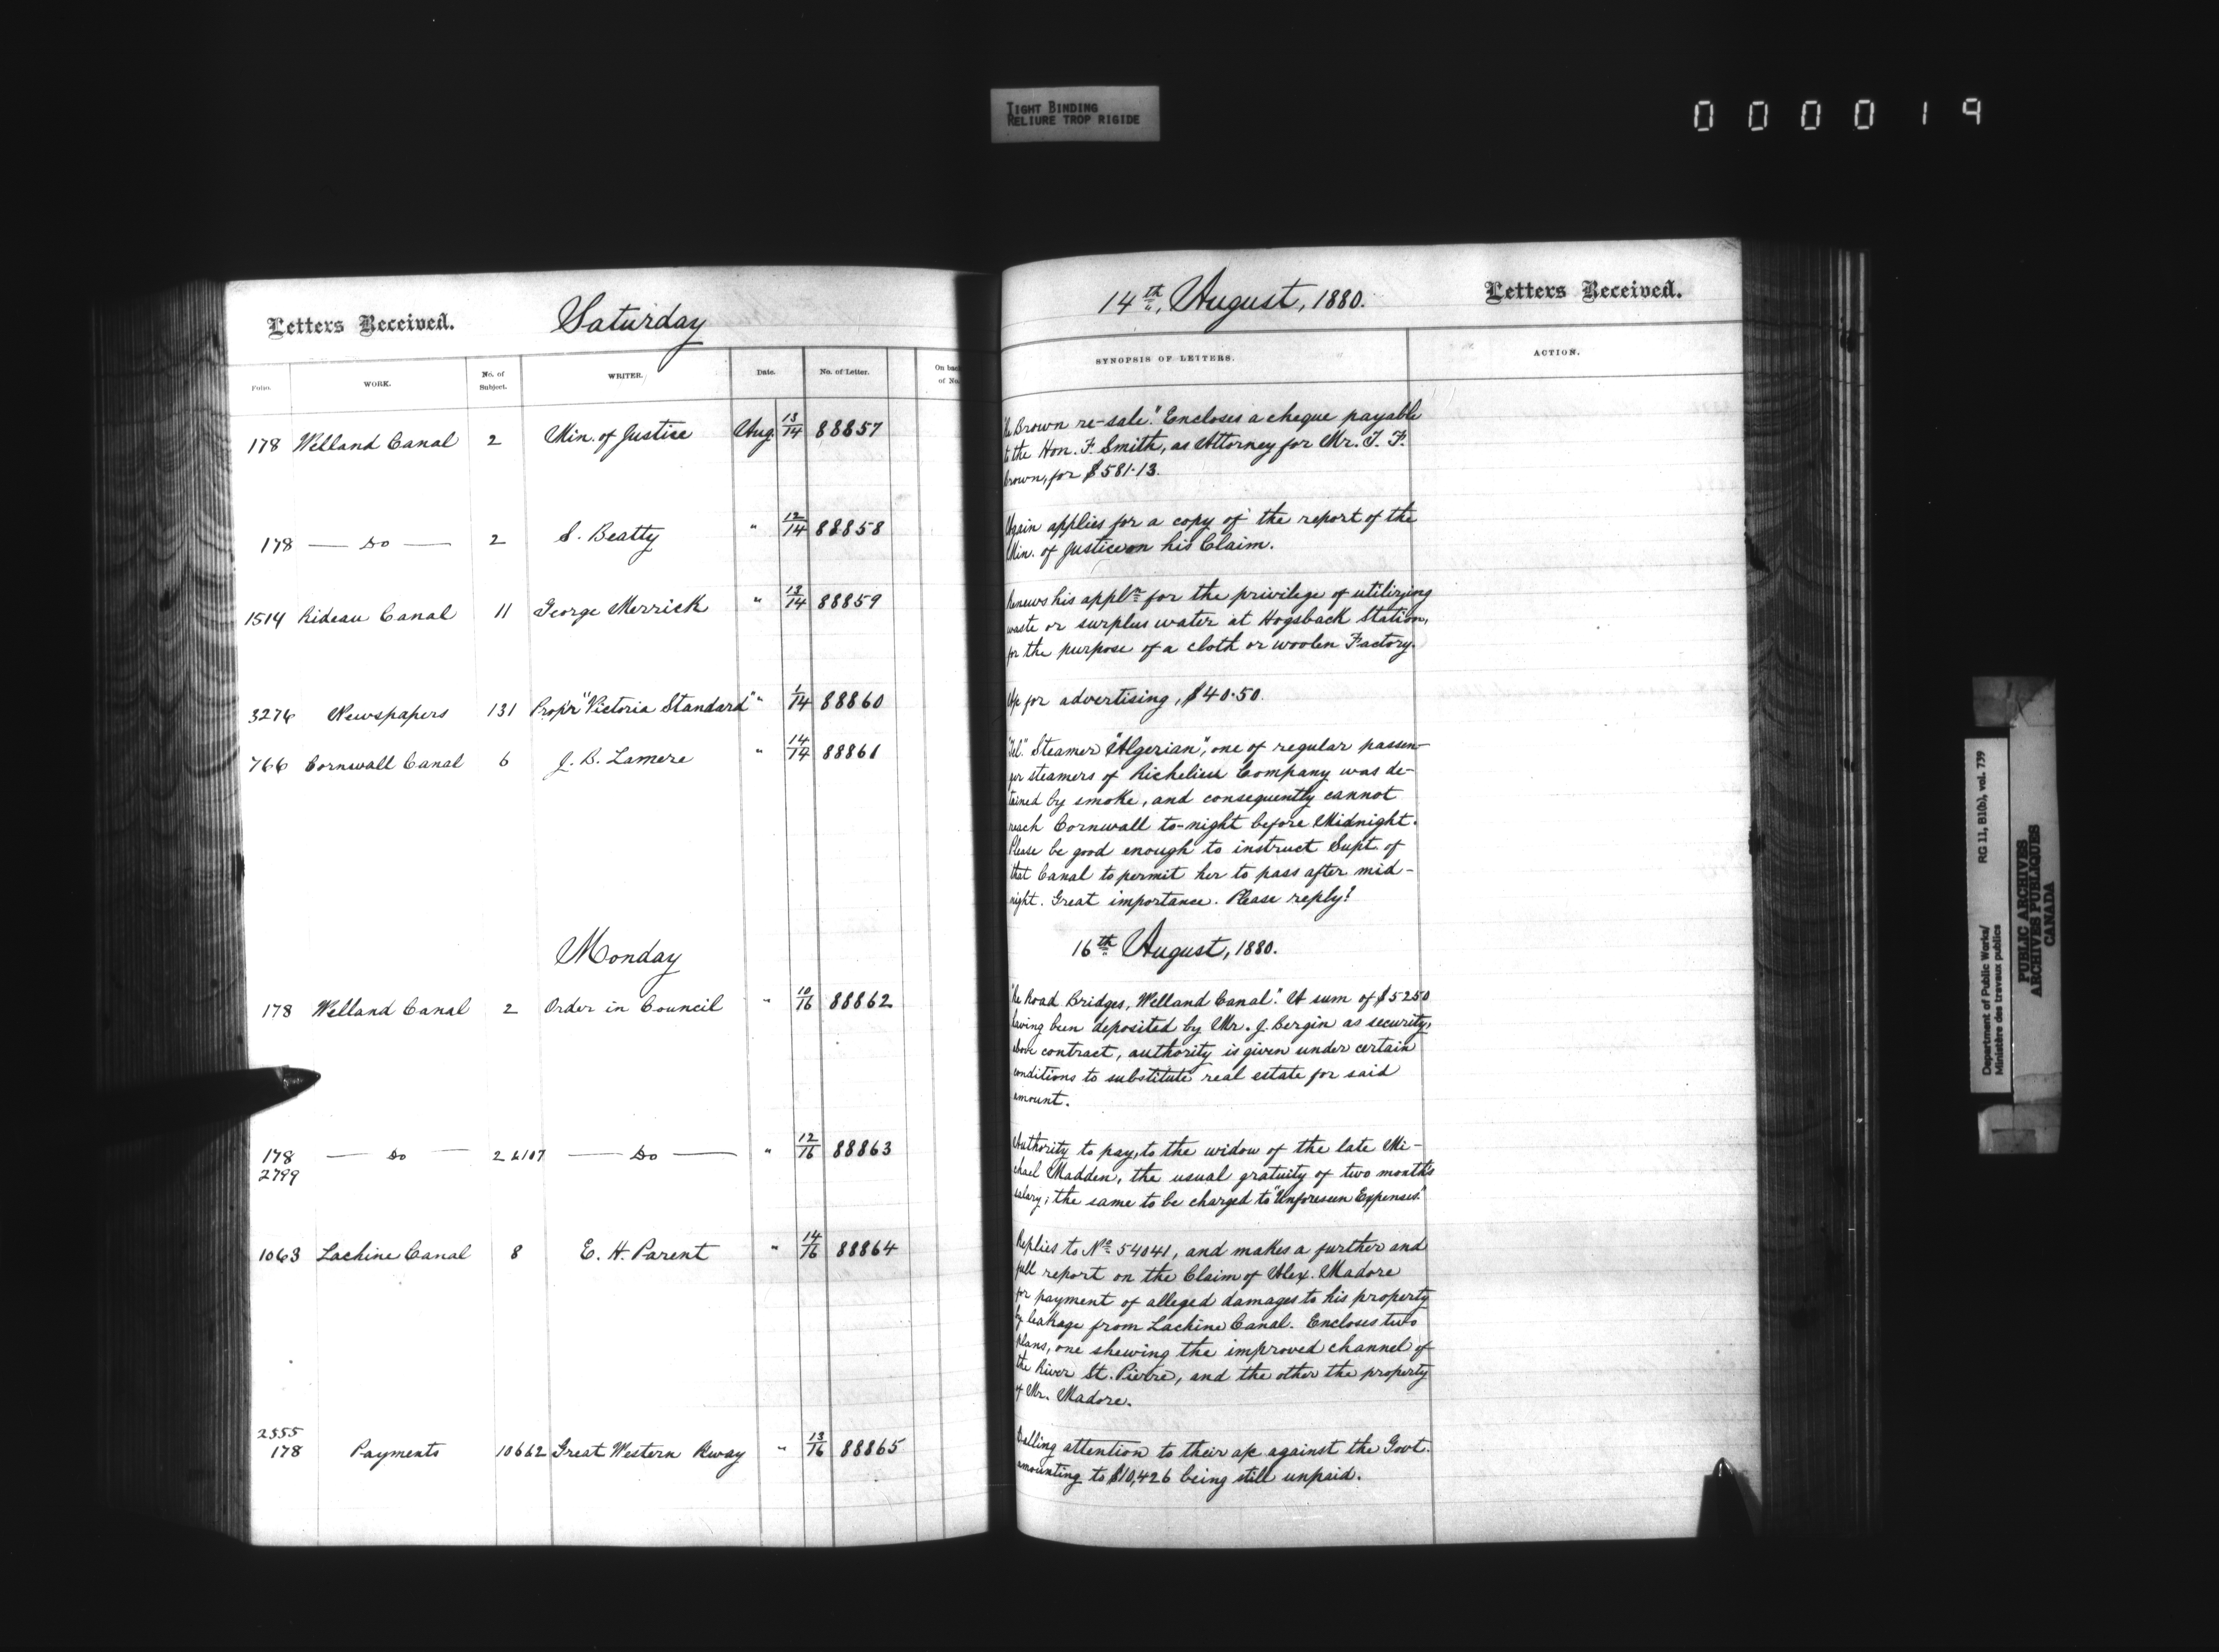 TIGHT BINDING
RELIURE TROP RIGIDE
000019
Letters Received.
Saturday
Folio.
WORK.
No. of Subject.
WRITER.
Date.
No. of Letter.
On back of No.
178 Welland Canal 2 Min. of Justice Aug. 13/14 88857
178 — Do — 2 S. Beatty " 12/14 88858
1514 Rideau Canal 11 George Merrick " 13/14 88859
3276 Newspapers 131 Prop'r "Victoria Standard" " 1/14 88860
766 Cornwall Canal 6 J. B. Lamere " 14/14 88861
Monday
178 Welland Canal 2 Order in Council " 10/16 88862
178 — Do — 2 & 107 — Do — " 12/16 88863
2799
1063 Lachine Canal 8 E. H. Parent " 14/16 88864
2555
178 Payments 10662 Great Western Rway " 13/16 88865
14th, August, 1880.
Letters Received.
SYNOPSIS OF LETTERS.
ACTION.
"Re Brown re-sale." Encloses a cheque payable
to the Hon. F. Smith, as Attorney for Mr. T. F.
Brown, for $581.13.
Again applies for a copy of the report of the
Min. of Justice on his Claim.
Renews his appln for the privilege of utilizing
waste or surplus water at Hogsback Station,
for the purpose of a cloth or woolen Factory.
A/c for advertising, $40.50.
"Tel." Steamer "Algerian", one of regular passen-
ger steamers of Richelieu Company was de-
tained by smoke, and consequently cannot
reach Cornwall to-night before Midnight.
Please be good enough to instruct Supt. of
that Canal to permit her to pass after mid-
night. Great importance. Please reply!
16th August, 1880.
"Re Road Bridges, Welland Canal". A sum of $5250
having been deposited by Mr. J. Bergin as security,
above contract, authority is given under certain
conditions to substitute real estate for said
amount.
Authority to pay, to the widow of the late Mi-
chael Madden, the usual gratuity of two month's
salary; the same to be charged to "Unforeseen Expenses."
Replies to No 54041, and makes a further and
full report on the Claim of Alex. Madore
for payment of alleged damages to his property
by leakage from Lachine Canal. Encloses two
plans, one shewing the improved channel of
the River St. Pierre, and the other the property
of Mr. Madore.
Calling attention to their a/c against the Govt.
amounting to $10,426 being still unpaid.
Department of Public Works/ RG 11, B1(b), vol. 739
Ministère des travaux publics
PUBLIC ARCHIVES
ARCHIVES PUBLIQUES
CANADA